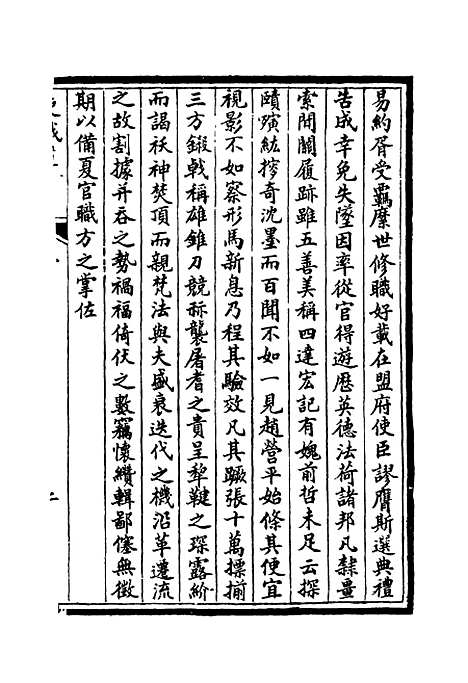 易約胥受羈縻世修職好載在盟府使臣謬膺斯選典禮
告成幸免失墜因率從官得遊歷英德法荷諸邦凡隸量
索間關履跡雖五善美稱四達宏記有媿前哲未足云探
賾演紘摛奇沈墨而百聞不如一見趙營平始條其便宜
視影不如察形馬新息乃程其驗效凡其蹶張十萬摽掤
三方鍛戟稱雄錐刀競秫襲屠耆之貴呈犂鞬之琛露紒
而謁祆神焚頂而親梵法與夫盛衰迭代之機沿革遷流
之故割據并吞之勢禍福倚伏之數竊懷纘輯鄙僿無徵
期以備夏官職方之掌佐
二